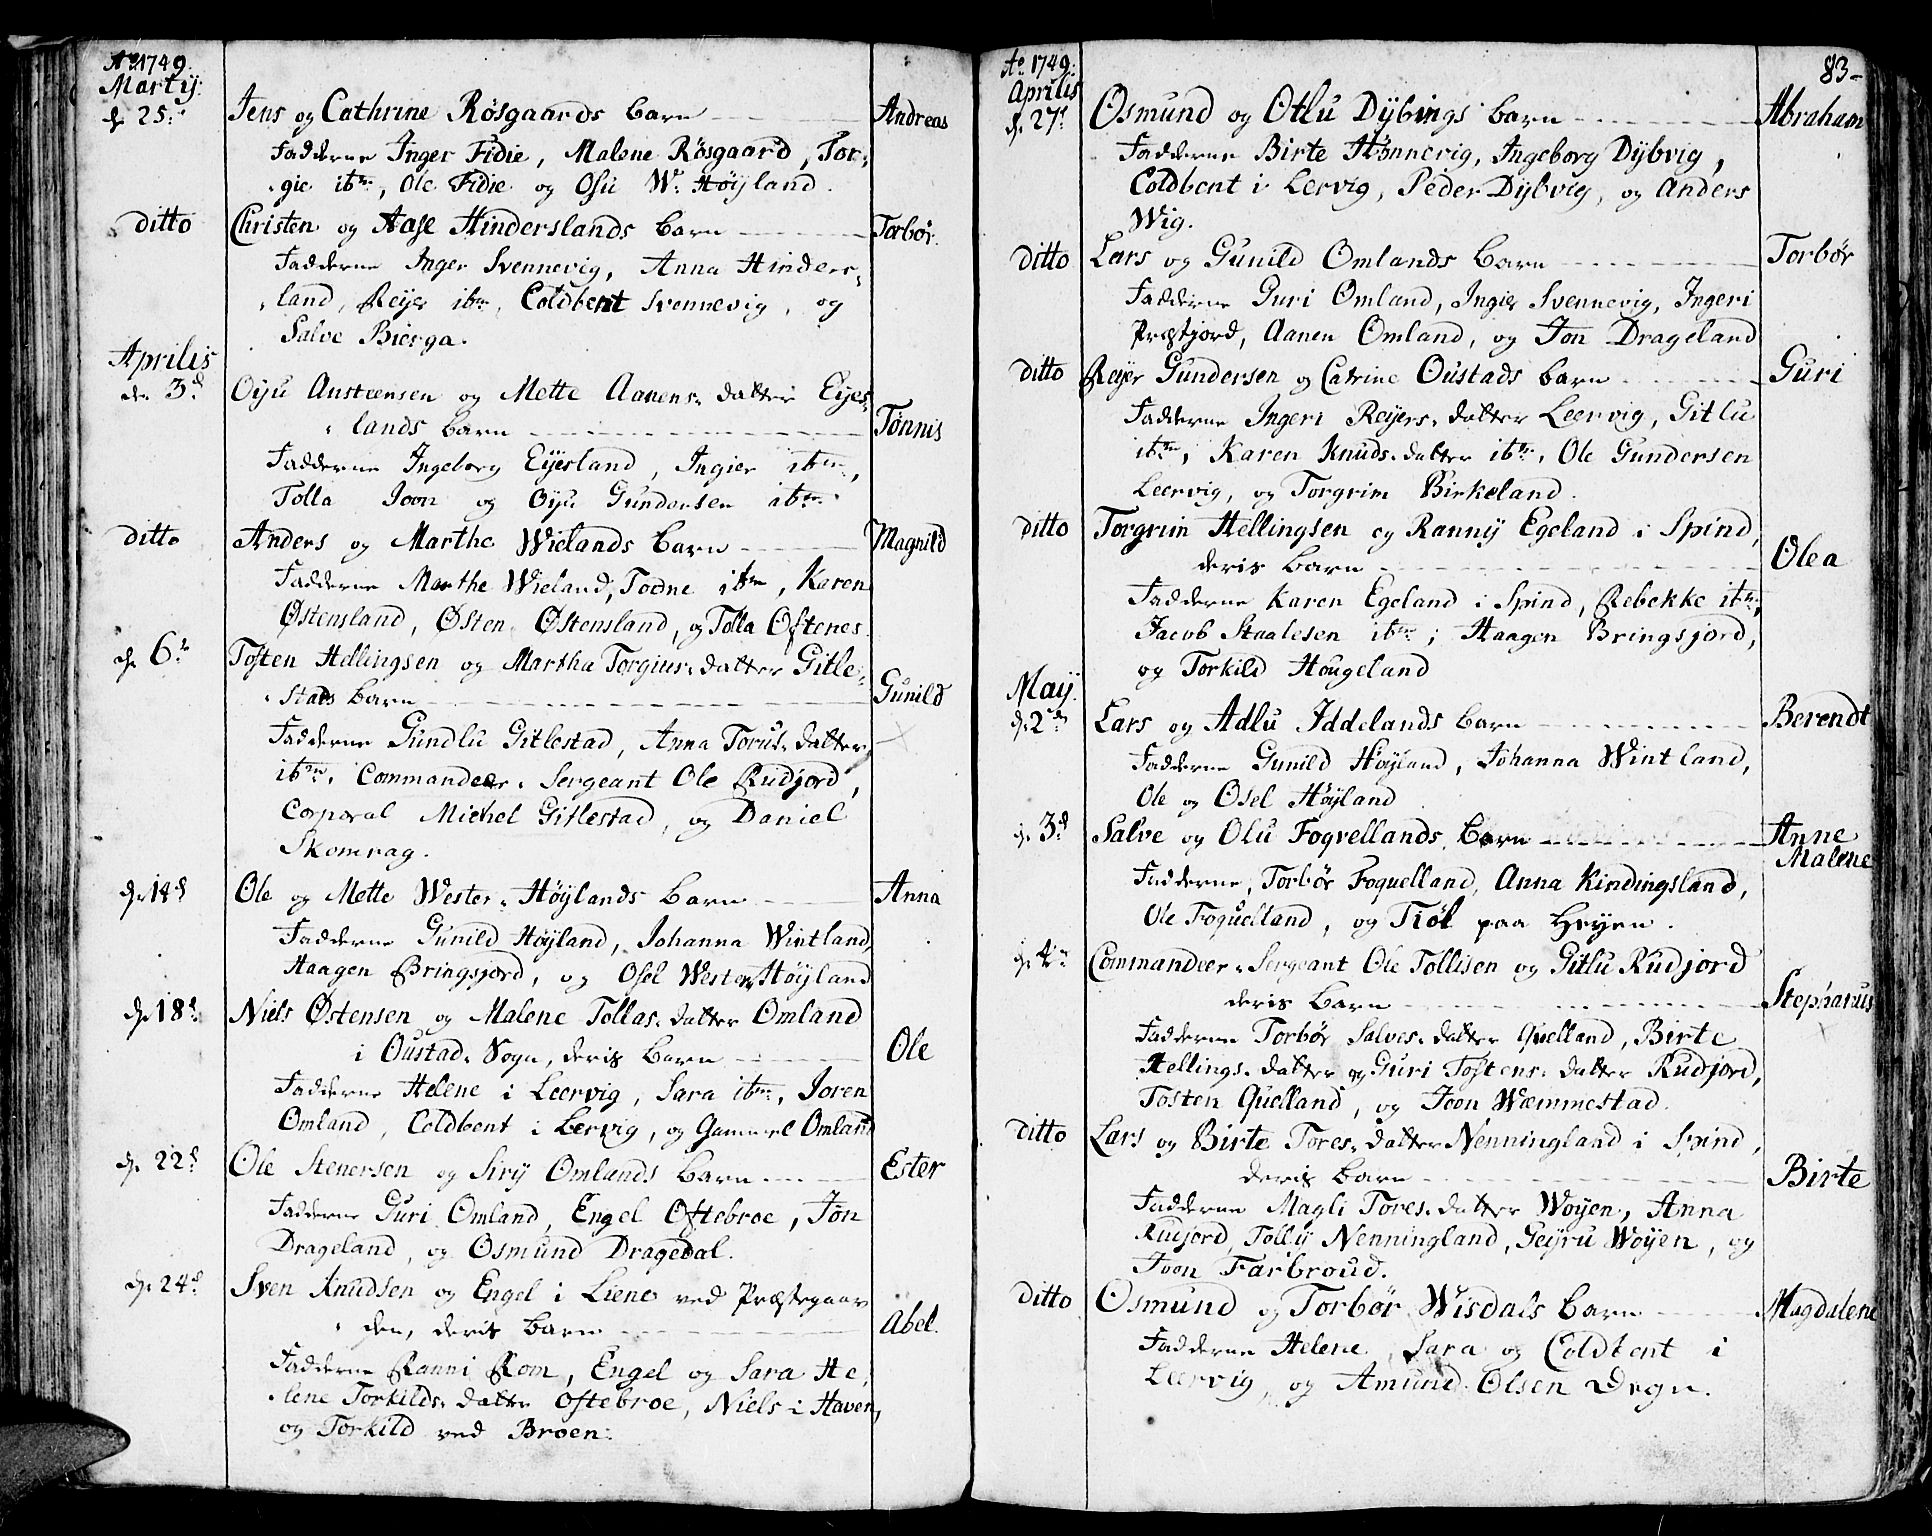 Ao 1749.
Martÿ.
d. 25.
Jens og Cathrine Røsgaards barn
Andreas
Fadderne Inger Fidie, Malene Røsgaard, Tor-
gie ibm, Ole Fidie og Osu W. Høÿland.
ditto
Christen og Aase Hinderslands barn
Torbør.
Fadderne Inger Svennevig, Anna Hinders-
land, Reÿer ibm, Coldbent Svennevig, og
Salve Bierga.
Aprilis
de 3d
Oÿu Anstensen og Mette Aanens datter Eÿes-
lands barn
Tønnis
Fadderne Ingeborg Eÿesland, Ingier ibm,
Tolla Joon og Oÿu Gundersen ibm
ditto
Anders og Marthe Wielands barn
Magnild
Fadderne Marthe Wieland, Todne ibm, Karen
Østensland, Østen Østensland, og Tolla Oftenes
d. 6.
Tosten Hellingsen og Martha Torgius datter Gitle-
stads barn
Gunild
Fadderne Gundlu Gitlestad, Anna Torus datter
ibm, Commandeer Sergeant Ole Rudjord,
Corporal Michel Gitlestad, og Daniel
Skomrag.
d. 14d
Ole og Mette Wester Høÿlands barn
Anna
Fadderne Gunild Høÿland, Johanna Wintland,
Haagen Bringsjord, og Osel Wester Høÿland
d. 18d
Niels Østensen og Malene Tollas datter Omland
i Oustad Sogn, deris barn
Ole
Fadderne Helene i Leervig, Sara ibm, Joren
Omland, Coldbent i Lervig, og Gammel Omland
d. 22d
Ole Stenersen og Sirÿ Omlands barn
Ester
Fadderne Guri Omland, Engel Oftebroe, Jon
Drageland, og Osmund Dragedal.
d. 24d
Sven Knudsen og Engel i Liene ved Præstegaar-
den, deris barn
Abel.
Fadderne Ranni Rom, Engel og Sara He-
lene Torkilds datter Oftebroe, Niels i Haven,
og Torkild ved Broen.
Ao 1749.
83-
Aprilis
d. 27
Osmund og Otlu Dÿbings barn
Abraham
Fadderne Birte Hønnevig, Ingeborg Dÿbvig,
Coldbent i Lervig, Peder Dÿbvig, og Anders
Wig.
ditto
Lars og Gunild Omlands barn
Torbør
Fadderne Guri Omland, Ingier Svennevig, Ingeri
Præstjord, Aanen Omland, og Jon Drageland
ditto
Reÿer Gundersen og Catrine Oustads barn
Guri
Fadderne Ingeri Reÿers datter Leervig, Gitlu
ibm, Karen Knuds datter ibm, Ole Gundersen
Leervig, og Torgrim Birkeland.
ditto
Torgrim Hellingsen og Rannÿ Egeland i Spind,
deris barn
Olea
Fadderne Karen Egeland i Spind, Rebekke ibm,
Jacob Staalesen ibm, Haagen Bringsjord,
og Torkild Hougeland
Maÿ.
d. 2d
Lars og Adlu Iddelands barn
Berendt
Fadderne Gunild Høÿland, Johanna Wintland,
Ole og Osel Høÿland
d. 3d
Salve og Olu Foqvellands barn
Anne
Malene
Fadderne, Torbør Foquelland, Anna Kindingsland,
Ole Foquelland, og Tiøl paa Heÿen.
d. 4
Commandeer Sergeant Ole Tollisen og Gitlu Rudjord
deris barn
Stephanus
Fadderne Torbør Salves datter Quelland, Birte
Hellings datter og Guri Tostens datter Rudjord,
Tosten Quelland, og Joon Wæmmestad.
ditto
Lars og Birte Tores datter Nenningland i Spind,
deris barn
Birte
Fadderne Magli Tores datter Woÿen, Anna
Rudjord, Tollÿ Nenningland, Geÿru Woÿen, og
Joon Farbroud.
ditto
Osmund og Torbør Wisdals barn
Magdalene
Fadderne Helene, Sara og Coldbent i
Leervig, og Amund Olsen Degn.